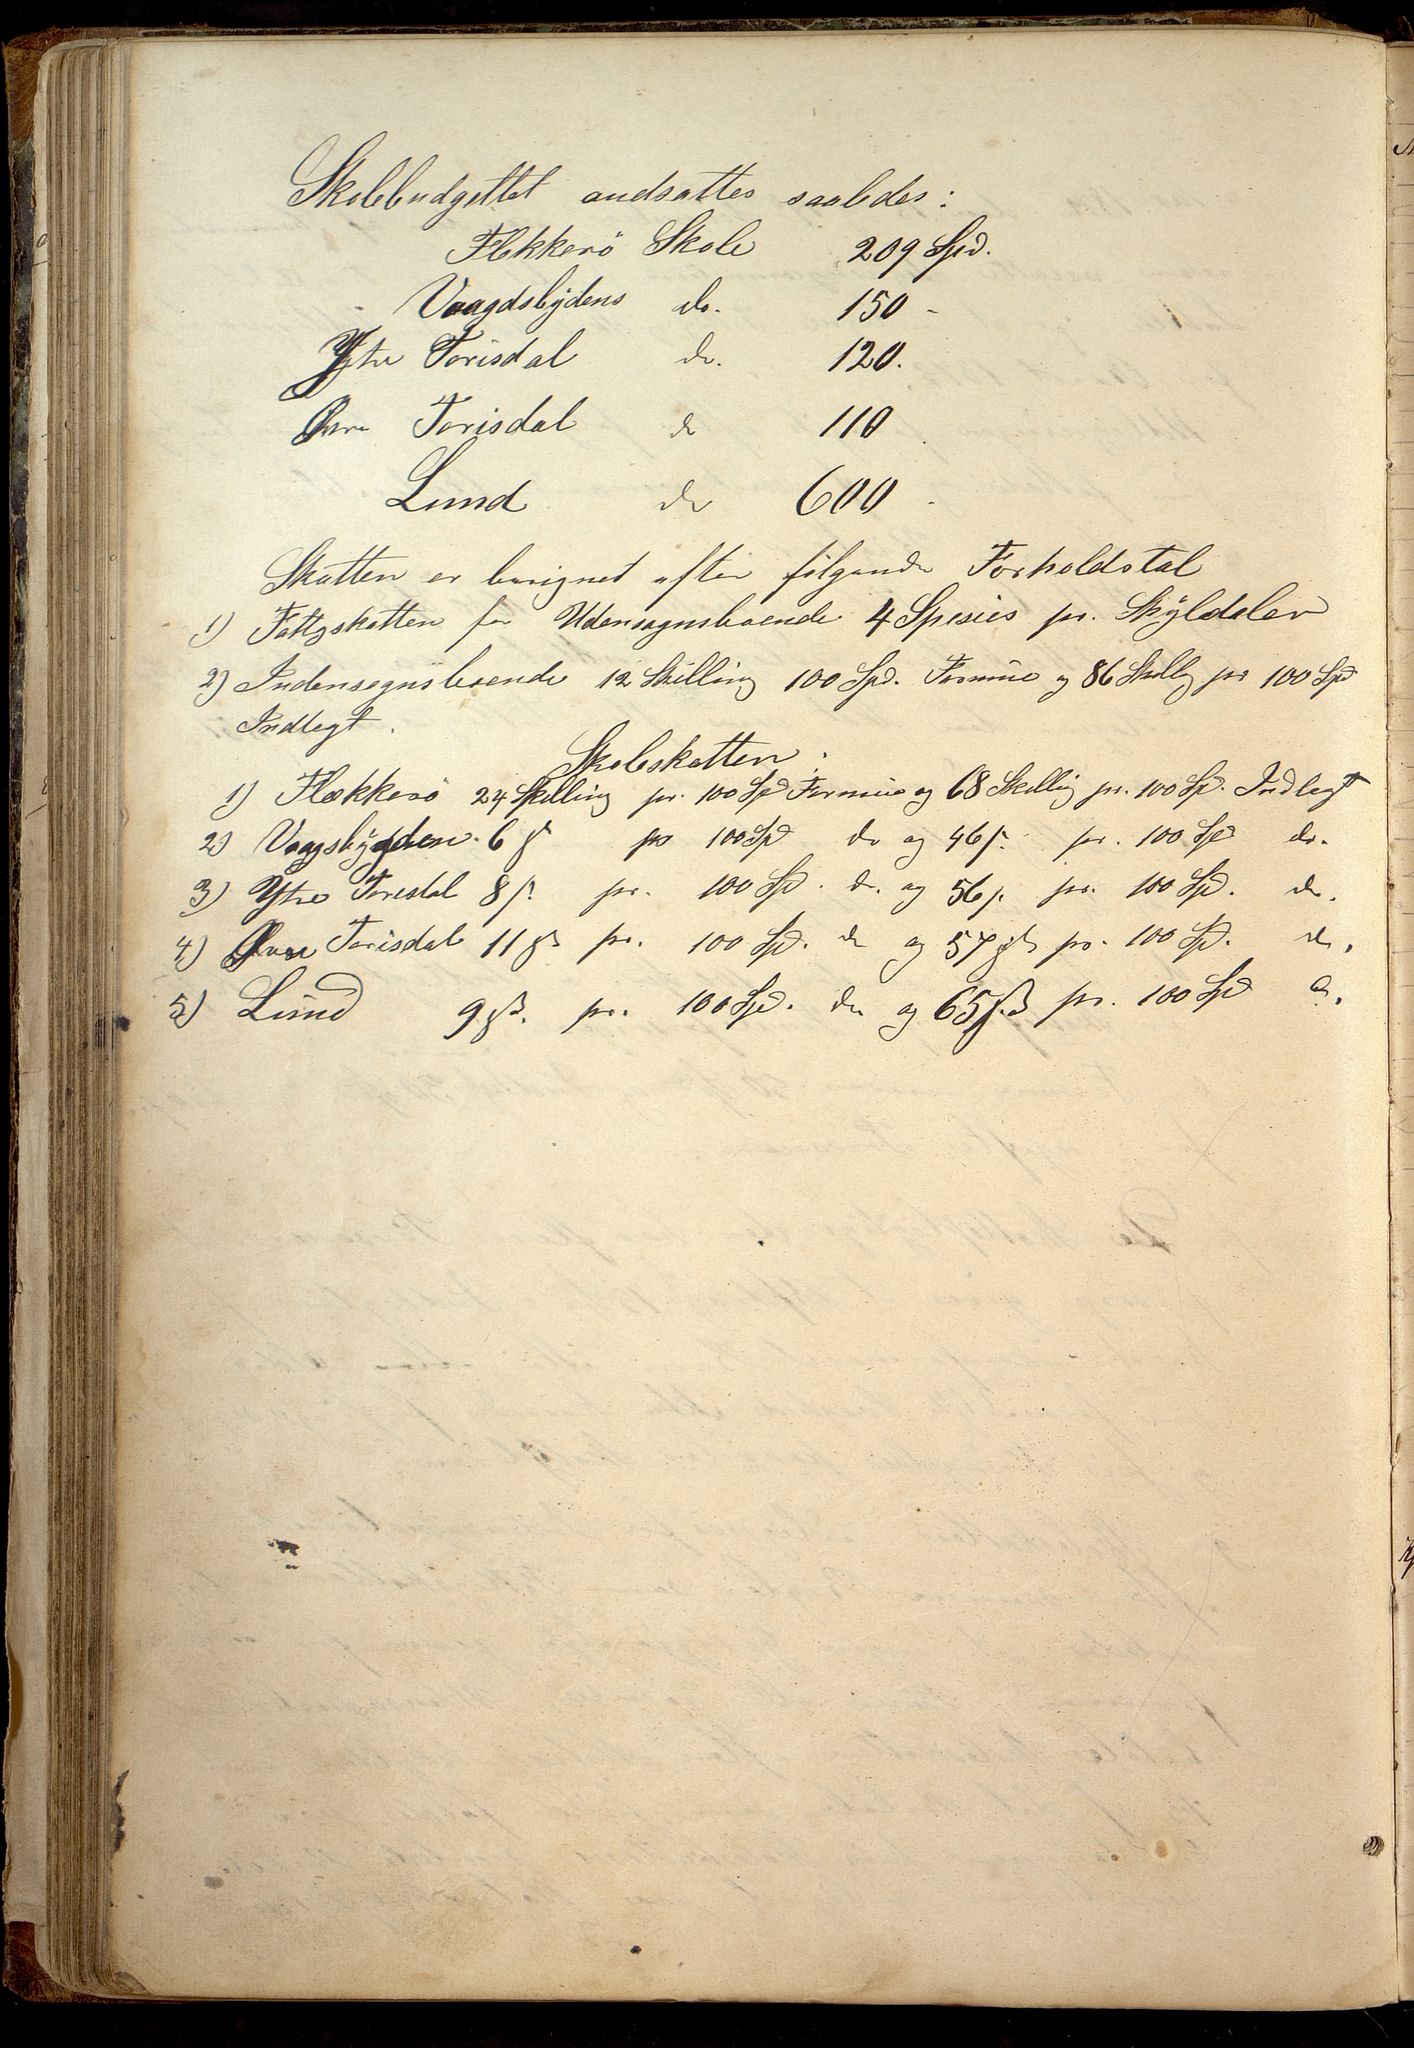 Skolebudgettet andsattes saaledes:
Flekkerö Skole 209 Spd.
Vaagdsbydens do. 150 -
Ytre Torisdal do. 120.
Øvre Torisdal do 110
Lund do 600 -
Skatten er berignet efter fölgende Forholdstal
1) Fattgskatten for Udensognsboende 4 Spesies pr. Skyldaler
2) Indensognsboende 12 Skilling 100 Spd. Formue og 86 Skillg pr 100 Spd
Indtegt.
Skoleskatten:
1) Flekkerö 24 Skilling pr. 100 Spd Formue og 68 Skillig pr. 100 Sp. Indtegt
2) Vaagsbygden 6 ß pr 100 Spd do og 46 ß. pr. 100 Spd do.
3) Ytre Torisdal 8 ß pr. 100 Spd. do. og 56 ß. pr. 100 Spd. do.
4) Øvre Torisdal 11 ß pr. 100 Spd. do og 57 ß pr. 100 Spd. do.
5) Lund 9 ß. pr. 100 Spd. do og 65 ß pr. 100 Spd do.